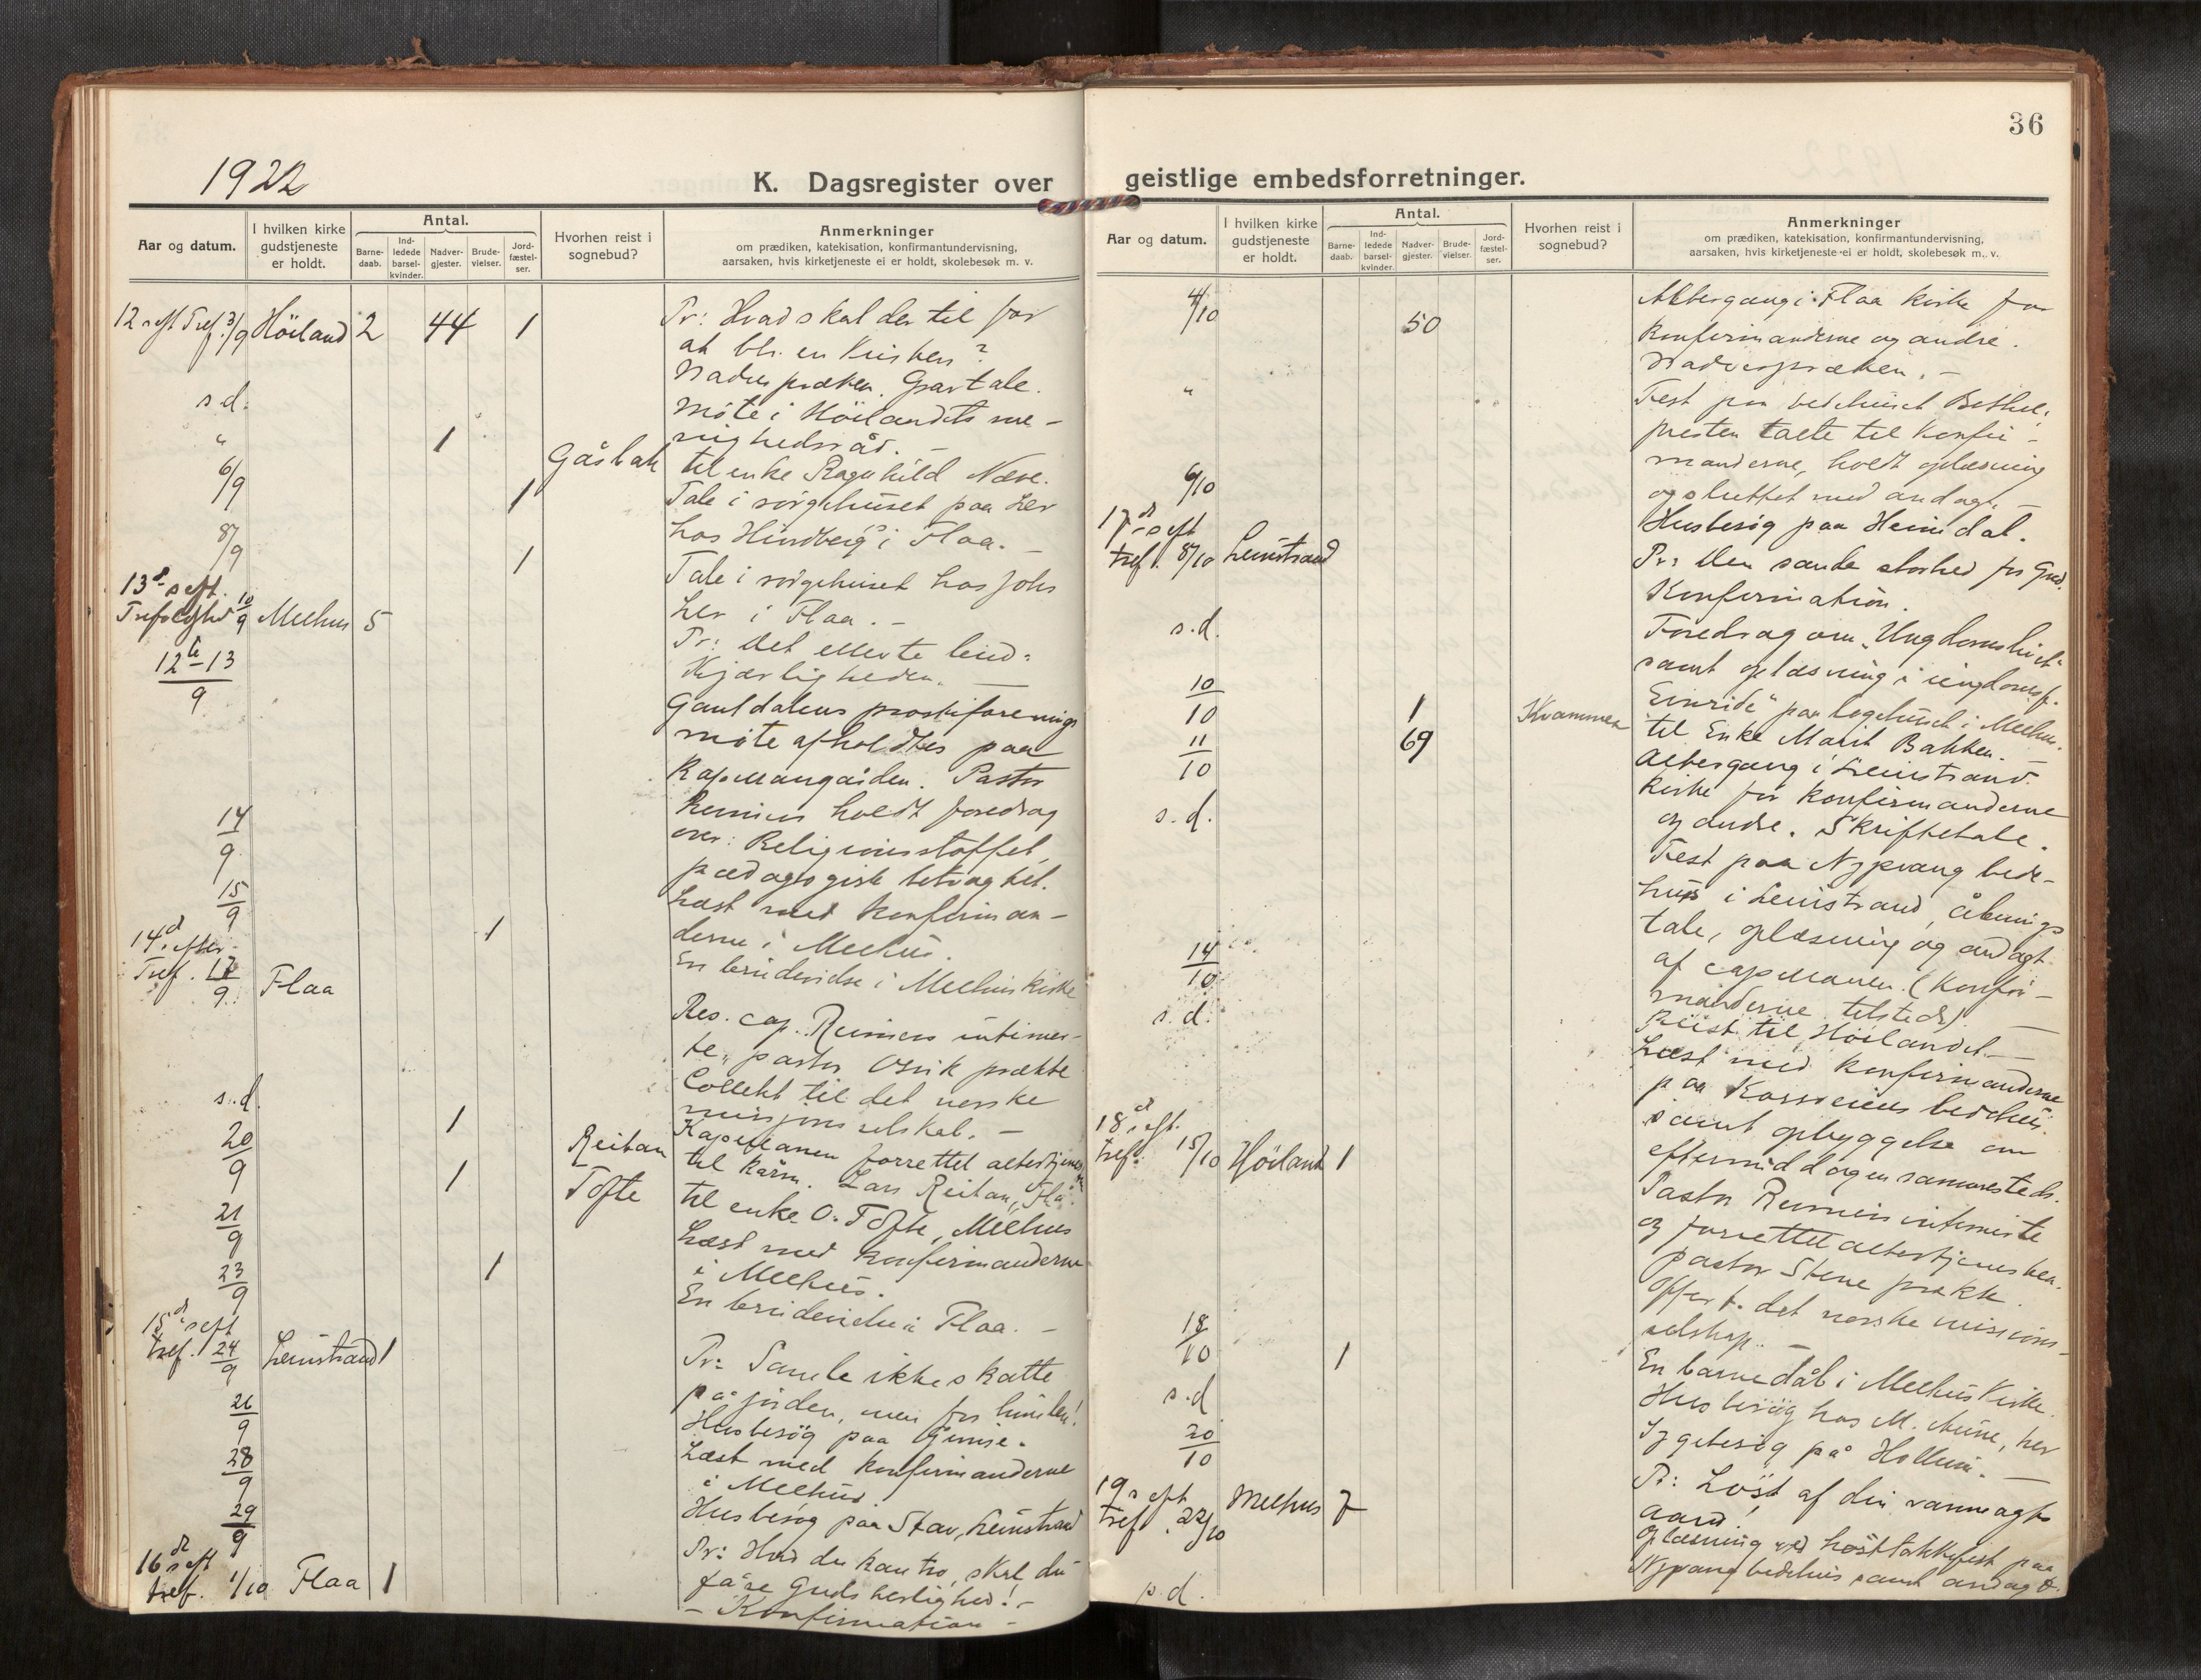 36
1922
K. Dagsregister over geistlige embedsforretninger.
Aar og datum.
I hvilken kirke gudstjeneste er holdt.
Antal.
Barne-daab.
Ind-ledede barsel-kvinder.
Nadver-gjester.
Brude-vielser.
Jord-fæstel-ser.
Hvorhen reist i sognebud?
Anmerkninger
om prædiken, katekisation, konfirmantundervisning,
aarsaken, hvis kirketjeneste ei er holdt, skolebesøk m. v.
12 s eft Tref. 3/9 Höiland 2 44 1 Pr: Hvad skal der til for
at bli en Kristen?
Nadverpræken. Gravtale.
s d. Möte i Höilandets me-
nighedsråd. -
" 1 Gåsbak til enke Ragnhild Næve.
6/9 1 Tale i sörgehuset paa Ler
hos Hindberg i Flaa. -
8/9 1 Tale i sörgehuset hos Johs
Ler i Flaa. -
13d s eft.
Trefoldighed 10/9 Melhus 5 Pr: Det ellevte bud:
Kjærligheden. -
12te-13/9 Gauldalens prostiforenings
möte afholdtes paa
Kapellangården. Pastor
Reimers holdt foredrag
over: Religionsstoffet,
pædagogisk betragtet.
14/9 Læst med konfirman-
derne i Melhus.
15/9 1 En brudevidse i Melhus kirke
14d s efter
Tref. 17/9 Flaa Res. cap. Reimers intimer-
te, pastor Osvik prækte
Collekt til det norske
missjonsselskab. -
s.d. 1 Reitan Kapellanen forrettet altertjenesten
til kårm. Lars Reitan, Flå.
20/9 1 Tofte til enke O. Tofte, Melhus
21/9 Læst med konfirmanderne
i Melhus.
23/9 1 En brudevielse i Flaa. -
15d s eft
tref. 24/9 Leinstrand 1 Pr: Samle ikke skatte
på jorden, men for himlen!
26/9 Husbesög paa Gimse.
28/9 Læst med konfirmanderne
i Melhus
29/9 Husbesög paa Stav, Leinstrand
16d s eft
tref. 1/10 Flaa 1 Pr: Hvis du kan tro, skal du
få se Guds herlighed! -
- Konfirmation -
Aar og datum.
I hvilken kirke gudstjeneste er holdt.
Antal.
Barne-daab.
Ind-ledede barsel-kvinder.
Nadver-gjester.
Brude-vielser.
Jord-fæstel-ser.
Hvorhen reist i sognebud?
Anmerkninger
om prædiken, katekisation, konfirmantundervisning,
aarsaken, hvis kirketjeneste ei er holdt, skolebesøk m. v.
4/10 50 Altergang i Flaa kirke for
konfirmanderne og andre.
Nadverpræken. -
" Fest paa bedehuset Bethel,
presten talte til konfir-
manderne, holdt oplæsning
og sluttet med andagt. -
6/10 Husbesög paa Heimdal.
17d s eft
tref. 8/10 Leinstrand Pr: Den sande storhed for Gud.
Konfirmation.
s.d. Foredrag om "Ungdomslivet"
samt oplæsning i ungdomsf.
"Einride" paa logehuset i Melhus.
10/10 1 Kvammen til Enke Marit Bakken. -
11/10 69 Altergang i Leinstrand
kirke for konfirmanderne
og andre. Skriftetale.
s.d. Fest paa Nypvang bede-
hus i Leinstrand, åbnings
tale, oplæsning og andagt
af capellanen. (Konfir-
manderne tilstede) -
14/10 Reist til Höilandet. -
s.d. Læst med konfirmanderne
paa Korsveiens bedehus.
samt opbyggelse om
eftermiddagen sammesteds.
18d s eft.
tref. 15/10 Höiland 1 Pastor Reimers intimerte
og forrettet altertjenesten.
pastor Stene prækte.
Offer t. det norske missions-
selskap. -
18/10 1 En barnedåb i Melhus Kirke.
s.d Husbesög hos M. Aune, her
20/10 Sygebesög på Hollum. -
19 s eft
tref. 22/10 Melhus 7 Pr: Löst af din vanmagts
aand!
s.d. Oplæsning ved hösttakkefest paa
Nypvang bedehus samt andagt.